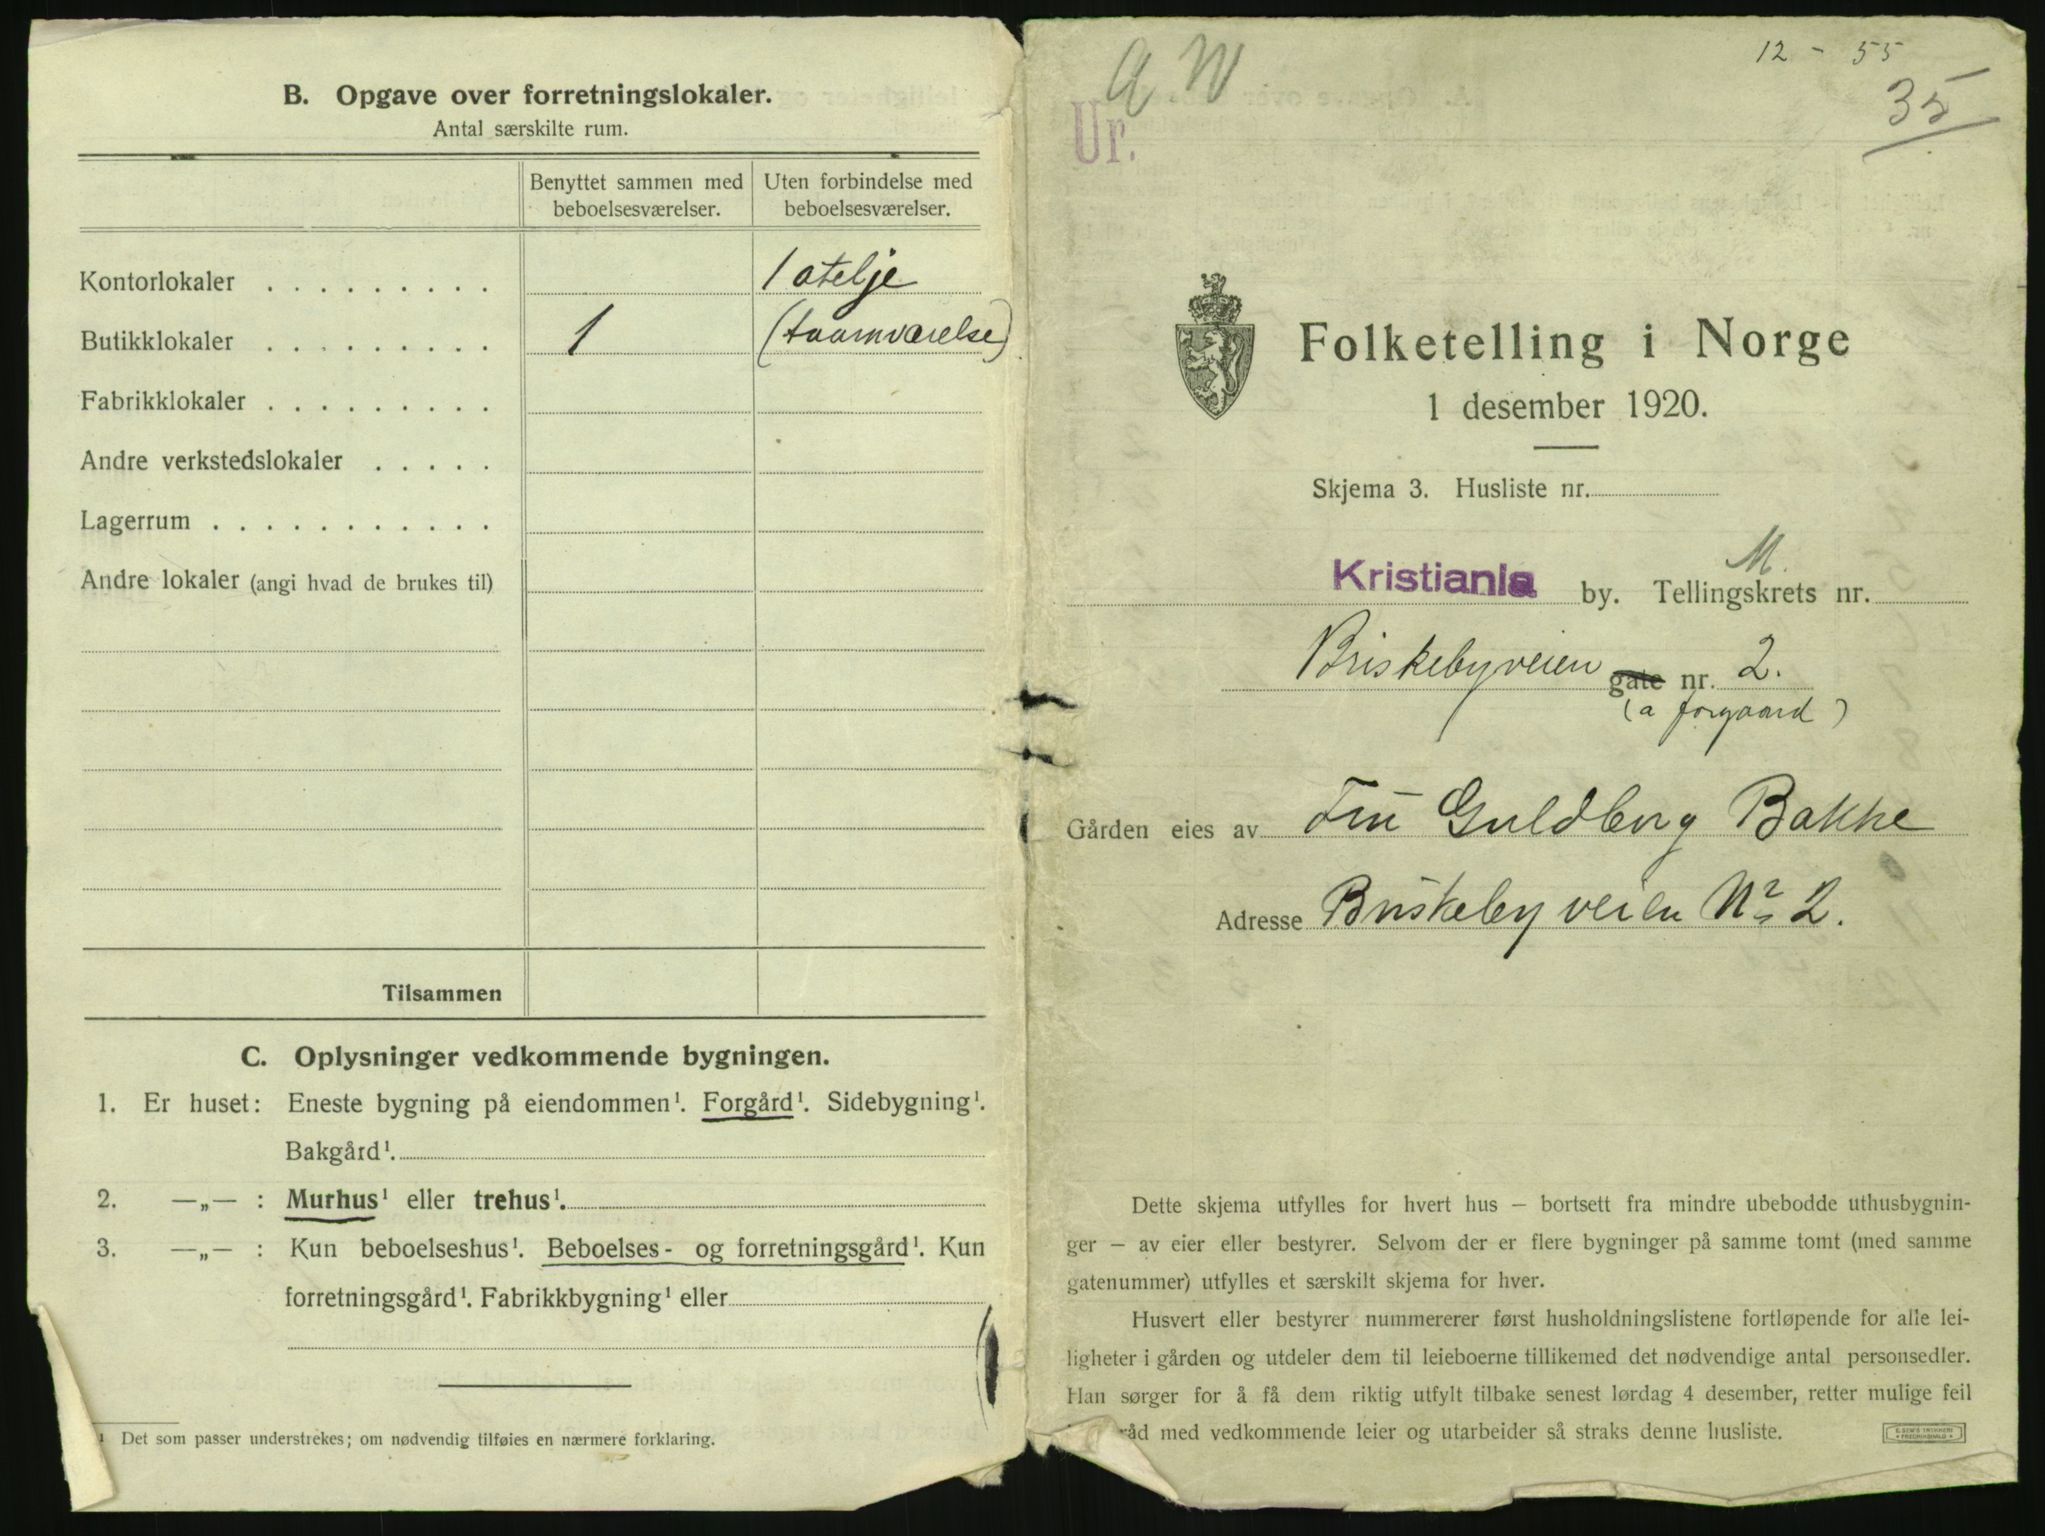 B. Opgave over forretningslokaler.
Antal særskilte rum.
Benyttet sammen med beboelsesværelser.
Uten forbindelse med beboelsesværelser.
Kontorlokaler . . . . . . . . . 1 atelje
Butikklokaler . . . . . . . . . 1 (taarnværelse)
Fabrikklokaler . . . . . . . . .
Andre verkstedslokaler . . . . .
Lagerrum . . . . . . . . . . . .
Andre lokaler (angi hvad de brukes til)
Tilsammen
C. Oplysninger vedkommende bygningen.
1. Er huset: Eneste bygning på eiendommen¹. Forgård¹. Sidebygning¹.
Bakgård¹.
2. —„— : Murhus¹ eller trehus¹.
3. —„— : Kun beboelseshus¹. Beboelses- og forretningsgård¹. Kun
forretningsgård¹. Fabrikkbygning¹ eller
¹ Det som passer understrekes; om nødvendig tilføies en nærmere forklaring.
12 - 55
A W
35
Ur.
Folketelling i Norge
1 desember 1920.
Skjema 3. Husliste nr.
M.
Kristiania by. Tellingskrets nr.
Briskebyveien gate nr. 2.
(a forgaard)
Gården eies av Fru Guldborg Bakke
Adresse Briskebyveien Nr 2.
Dette skjema utfylles for hvert hus — bortsett fra mindre ubebodde uthusbygnin-
ger — av eier eller bestyrer. Selvom der er flere bygninger på samme tomt (med samme
gatenummer) utfylles et særskilt skjema for hver.
Husvert eller bestyrer nummererer først husholdningslistene fortløpende for alle lei-
ligheter i gården og utdeler dem til leieboerne tillikemed det nødvendige antal personsedler.
Han sørger for å få dem riktig utfylt tilbake senest lørdag 4 desember, retter mulige feil
råd med vedkommende leier og utarbeider så straks denne husliste.